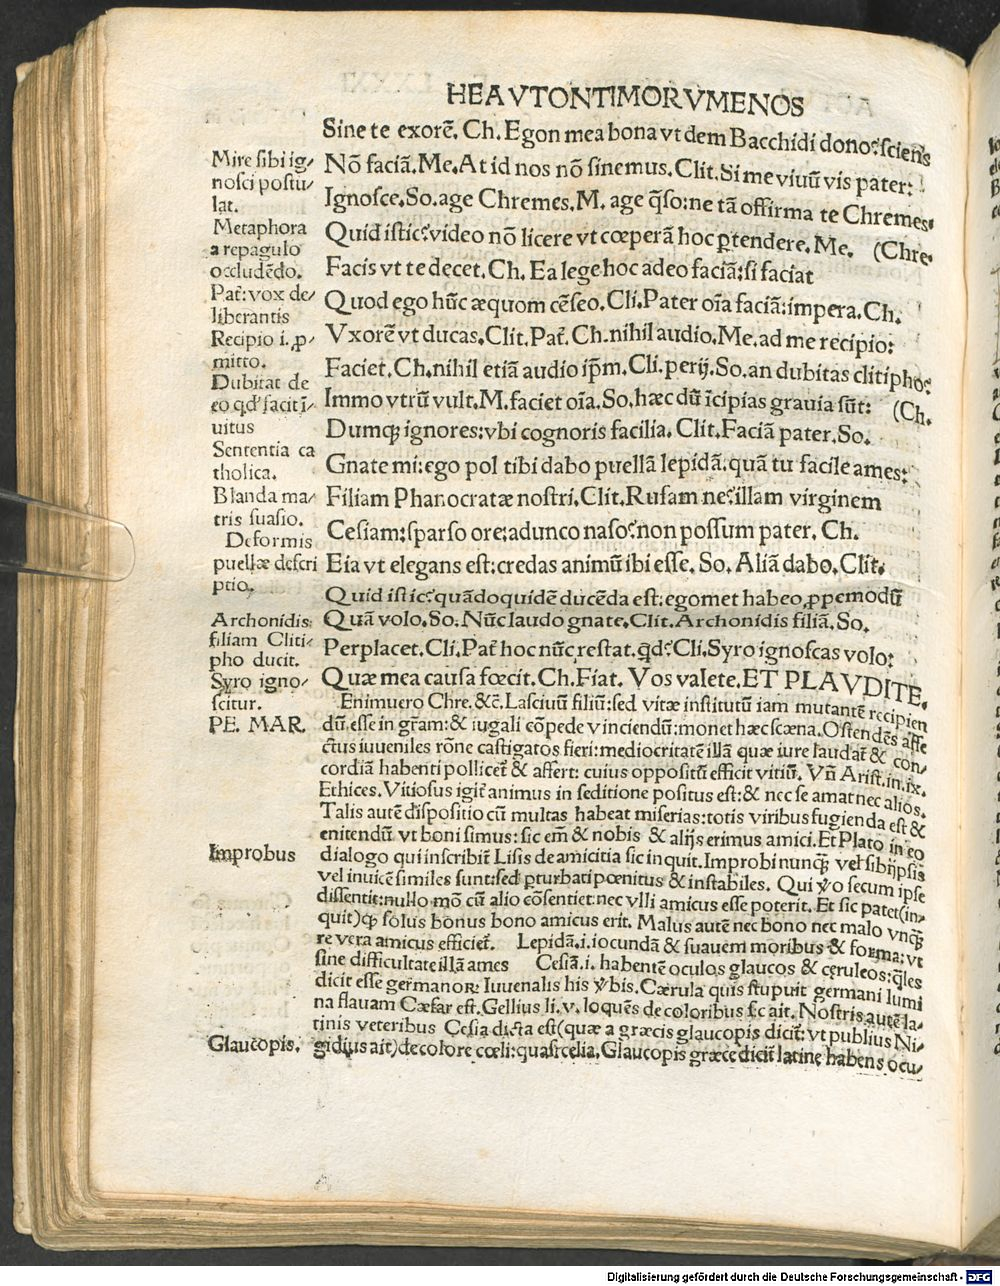 HEAVTONTIMORVMENOS
Sine te exorē. Ch. Egon mea bona vt dem Bacchidi dono?sciens
Nō faciā. Me. At id nos nō sinemus. Clit. Si me viuū vis pater:
Ignosce. So. age Chremes. M. age q̄so:ne tā offirma te Chremes.
Quid istic?video nō licere vt cœperā hoc ꝑtendere. Me. (Chre.
Facis vt te decet. Ch. Ea lege hoc adeo faciā:si faciat
Quod ego hūc æquom cēseo. Cli. Pater oīa faciā:impera. Ch.
Vxorē vt ducas. Clit. Pat̄. Ch. nihil audio. Me. ad me recipio:
Faciet. Ch. nihil etiā audio ip̄m. Cli. perij. So. an dubitas clitipho?
Immo vtrū vult. M. faciet oīa. So. hæc dū īcipias grauia sūt: (Ch.
Dumqꝫ ignores:vbi cognoris facilia. Clit. Faciā pater. So.
Gnate mi:ego pol tibi dabo puellā lepidā.quā tu facile ames:
Filiam Phanocratæ nostri. Clit. Rufam ne?illam virginem
Cesiam:sparso ore:adunco naso?non possum pater. Ch.
Eia vt elegans est:credas animū ibi esse. So. Aliā dabo. Clit.
Quid istic?quādoquidē ducēda est:egomet habeo ꝓpemodū
Quā volo. So. Nūc laudo gnate. Clit. Archonidis filiā. So.
Perplacet. Cli. Pat̄ hoc nūc restat. qd̄? Cli. Syro ignoscas volo:
Quæ mea causa fœcit. Ch. Fiat. Vos valete. ET PLAVDITE.
Mire sibi ig-
nosci postu-
lat.
Metaphora
a repagulo
occludēdo.
Pat̄:vox de-
liberantis
Recipio i. ꝓ-
mitto.
Dubitat de
eo qd̄ facit ī-
uitus
Sententia ca
tholica.
Blanda ma-
tris suasio.
Deformis
puellæ descri
ptio.
Archonidis
filiam Cliti-
pho ducit.
Syro igno-
scitur.
PE. MAR.
Enimuero Chre. &c̄. Lasciuū filiū:sed vitæ institutū iam mutantē recipien
dū esse in gr̄am:& iugali cōpede vinciendū:monet hæc scæna. Ostendēs affe
ctus iuueniles rōne castigatos fieri:mediocritatē illā quæ iure laudat̄ & con-
cordiā habenti pollicet̄ & affert: cuius oppositū efficit vitiū. Vn̄ Arist. in. ix.
Ethices. Vitiosus igit̄ animus in seditione positus est:& nec se amat nec alios.
Talis autē dispositio cū multas habeat miserias:totis viribus fugienda est &
enitendū vt boni simus: sic em̄ & nobis & alijs erimus amici. Et Plato in eo
Improbus
dialogo qui inscribit̄ Lisis de amicitia sic inquit. Improbi nunqꝫ vel sibijpsis
vel inuicē similes sunt:sed ꝑturbati pœnitus & instabiles. Qui ꝟo secum ipse
dissentit:nullo mō cū alio cōsentiet:nec vlli amicus esse poterit. Et sic patet(in-
quit)qꝫ solus bonus bono amicus erit. Malus autē nec bono nec malo vnqꝫ
re vera amicus efficiet̄. Lepidā. i. iocundā & suauem moribus & forma: vt
sine difficultate illā ames Cesiā. i. habentē oculos glaucos & ceruleos: q̄les
dicit esse germanoꝝ Iuuenalis his ꝟbis. Cærula quis stupuit germani lumi
na flauam Cæsar est. Gellius li. v. loquēs de coloribus sic ait. Nostris autē la-
tinis veteribus Cesia dicta est(quæ a græcis glaucopis dicit̄: vt publius Ni-
Glaucopis.
gidius ait)de colore cœli:quasi celia. Glaucopis græce dicit̄ latine habens ocu-
Digitalisierung gefördert durch die Deutsche Forschungsgemeinschaft - DFG